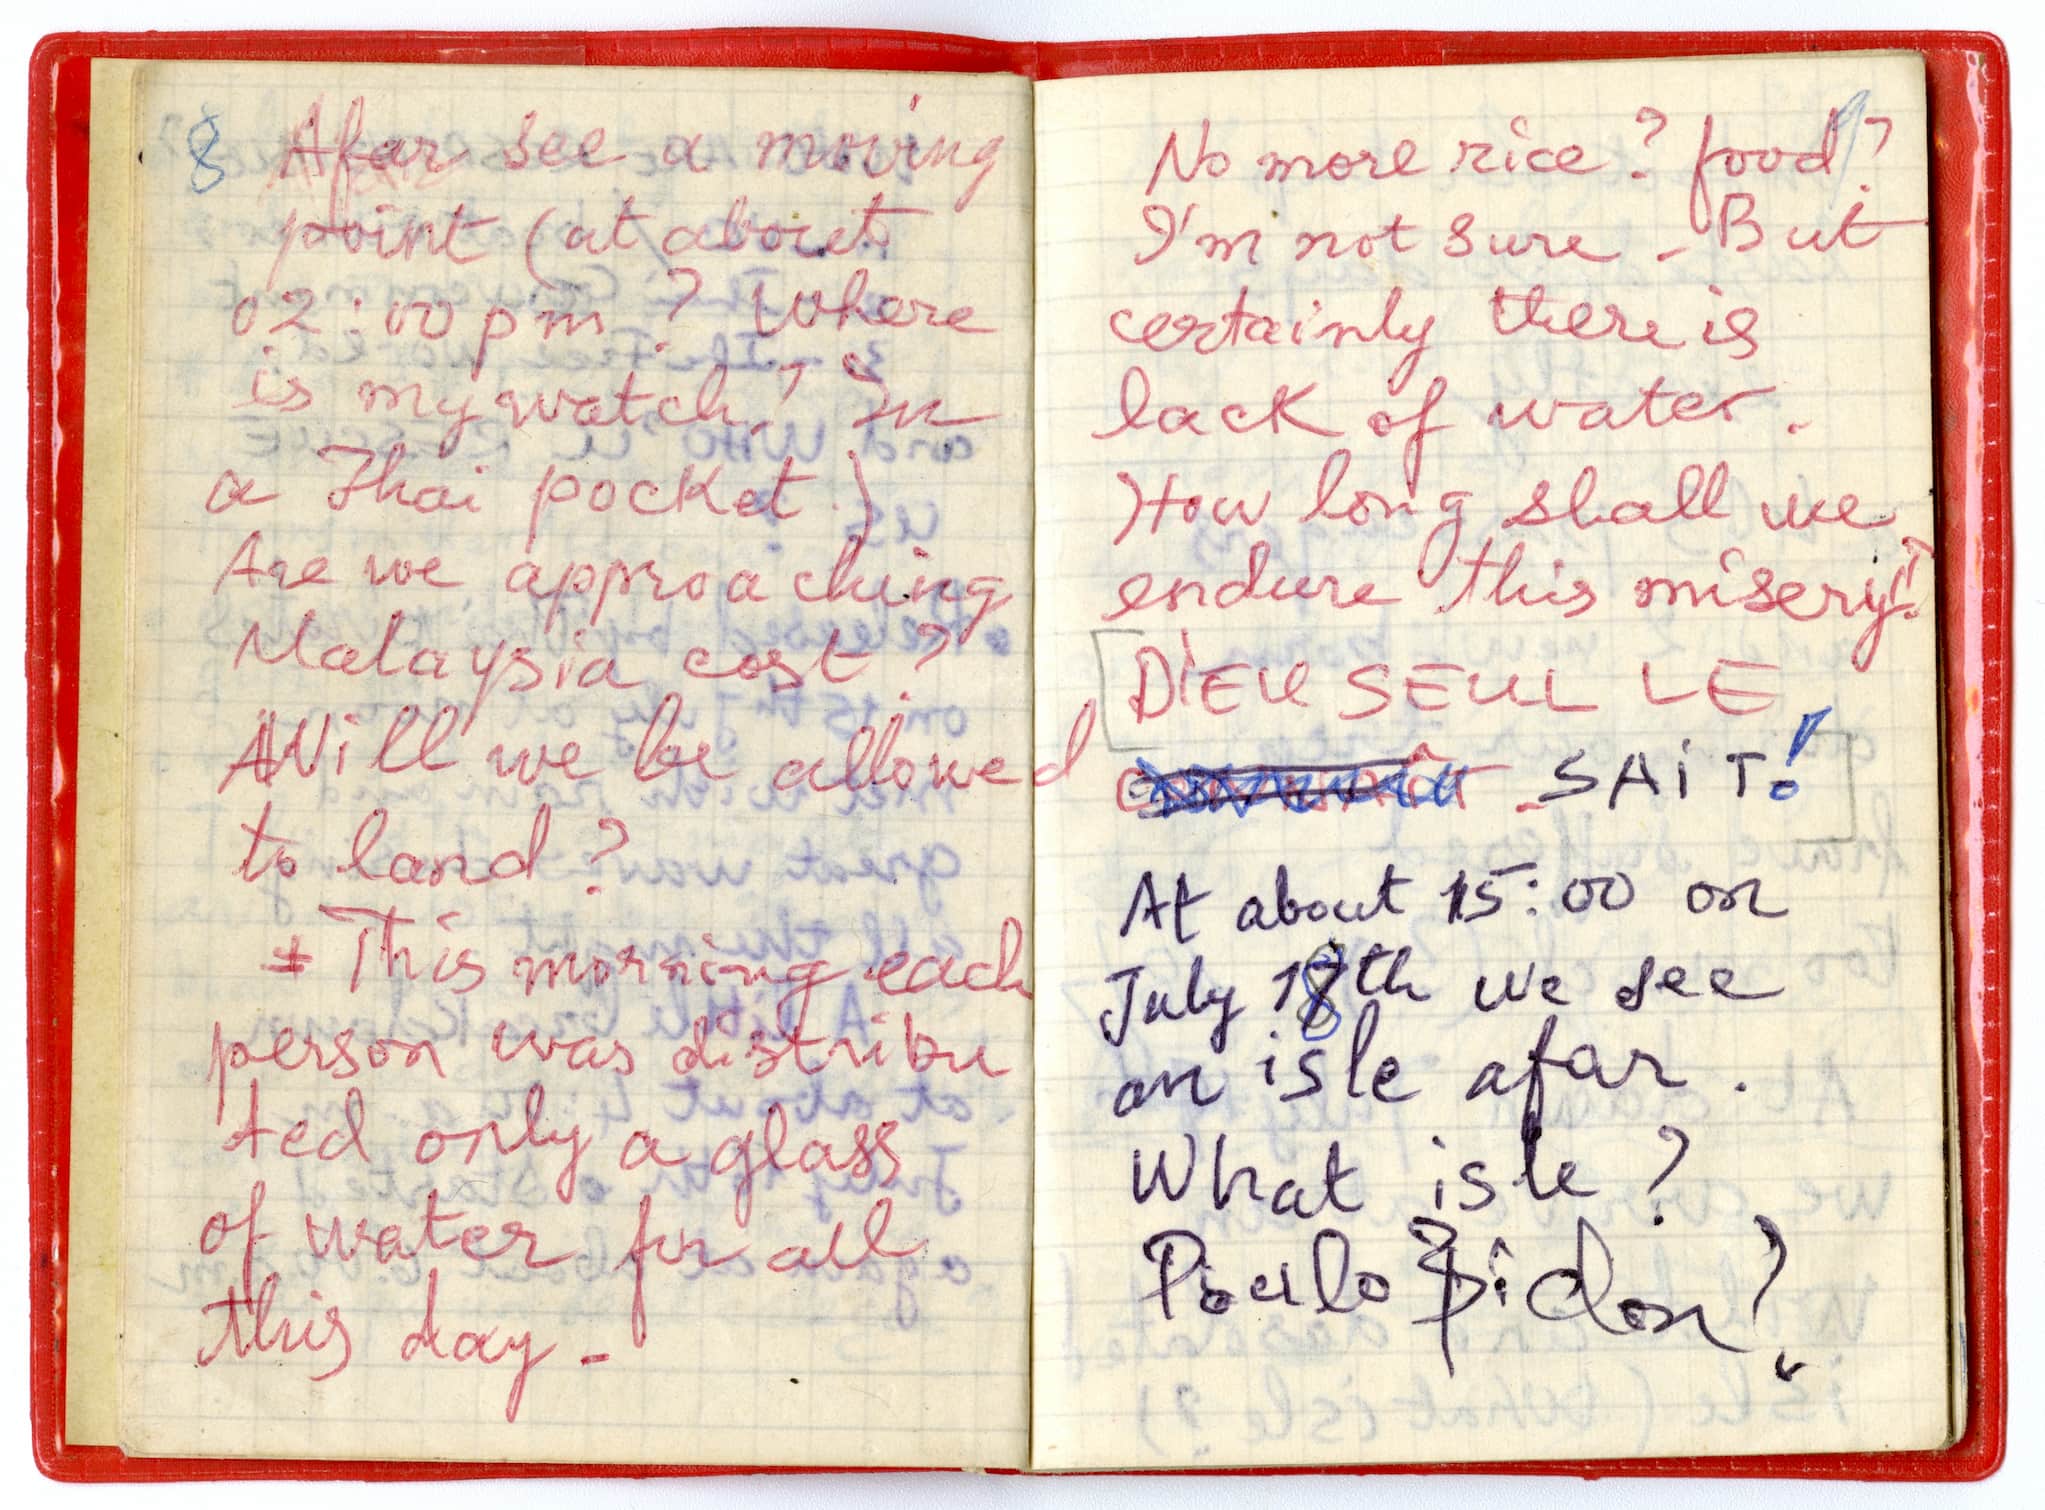 8 Afar see a moving
point (at about
02:00 pm? Where
is my watch? In
a Thai pocket.)
Are we approaching
Malaysia cost?
Will we be allowed
to land?
+ This morning each
person was distribu
ted only a glass
of water for all
this day -
9
No more rice? food?
I'm not sure - But
certainly there is
lack of water.
How long shall we
endure this misery?!
DİEU SEUL LE
SAiT!
At about 15:00 on
July 18th we see
an isle afar.
What isle?
Poulo Bidon?